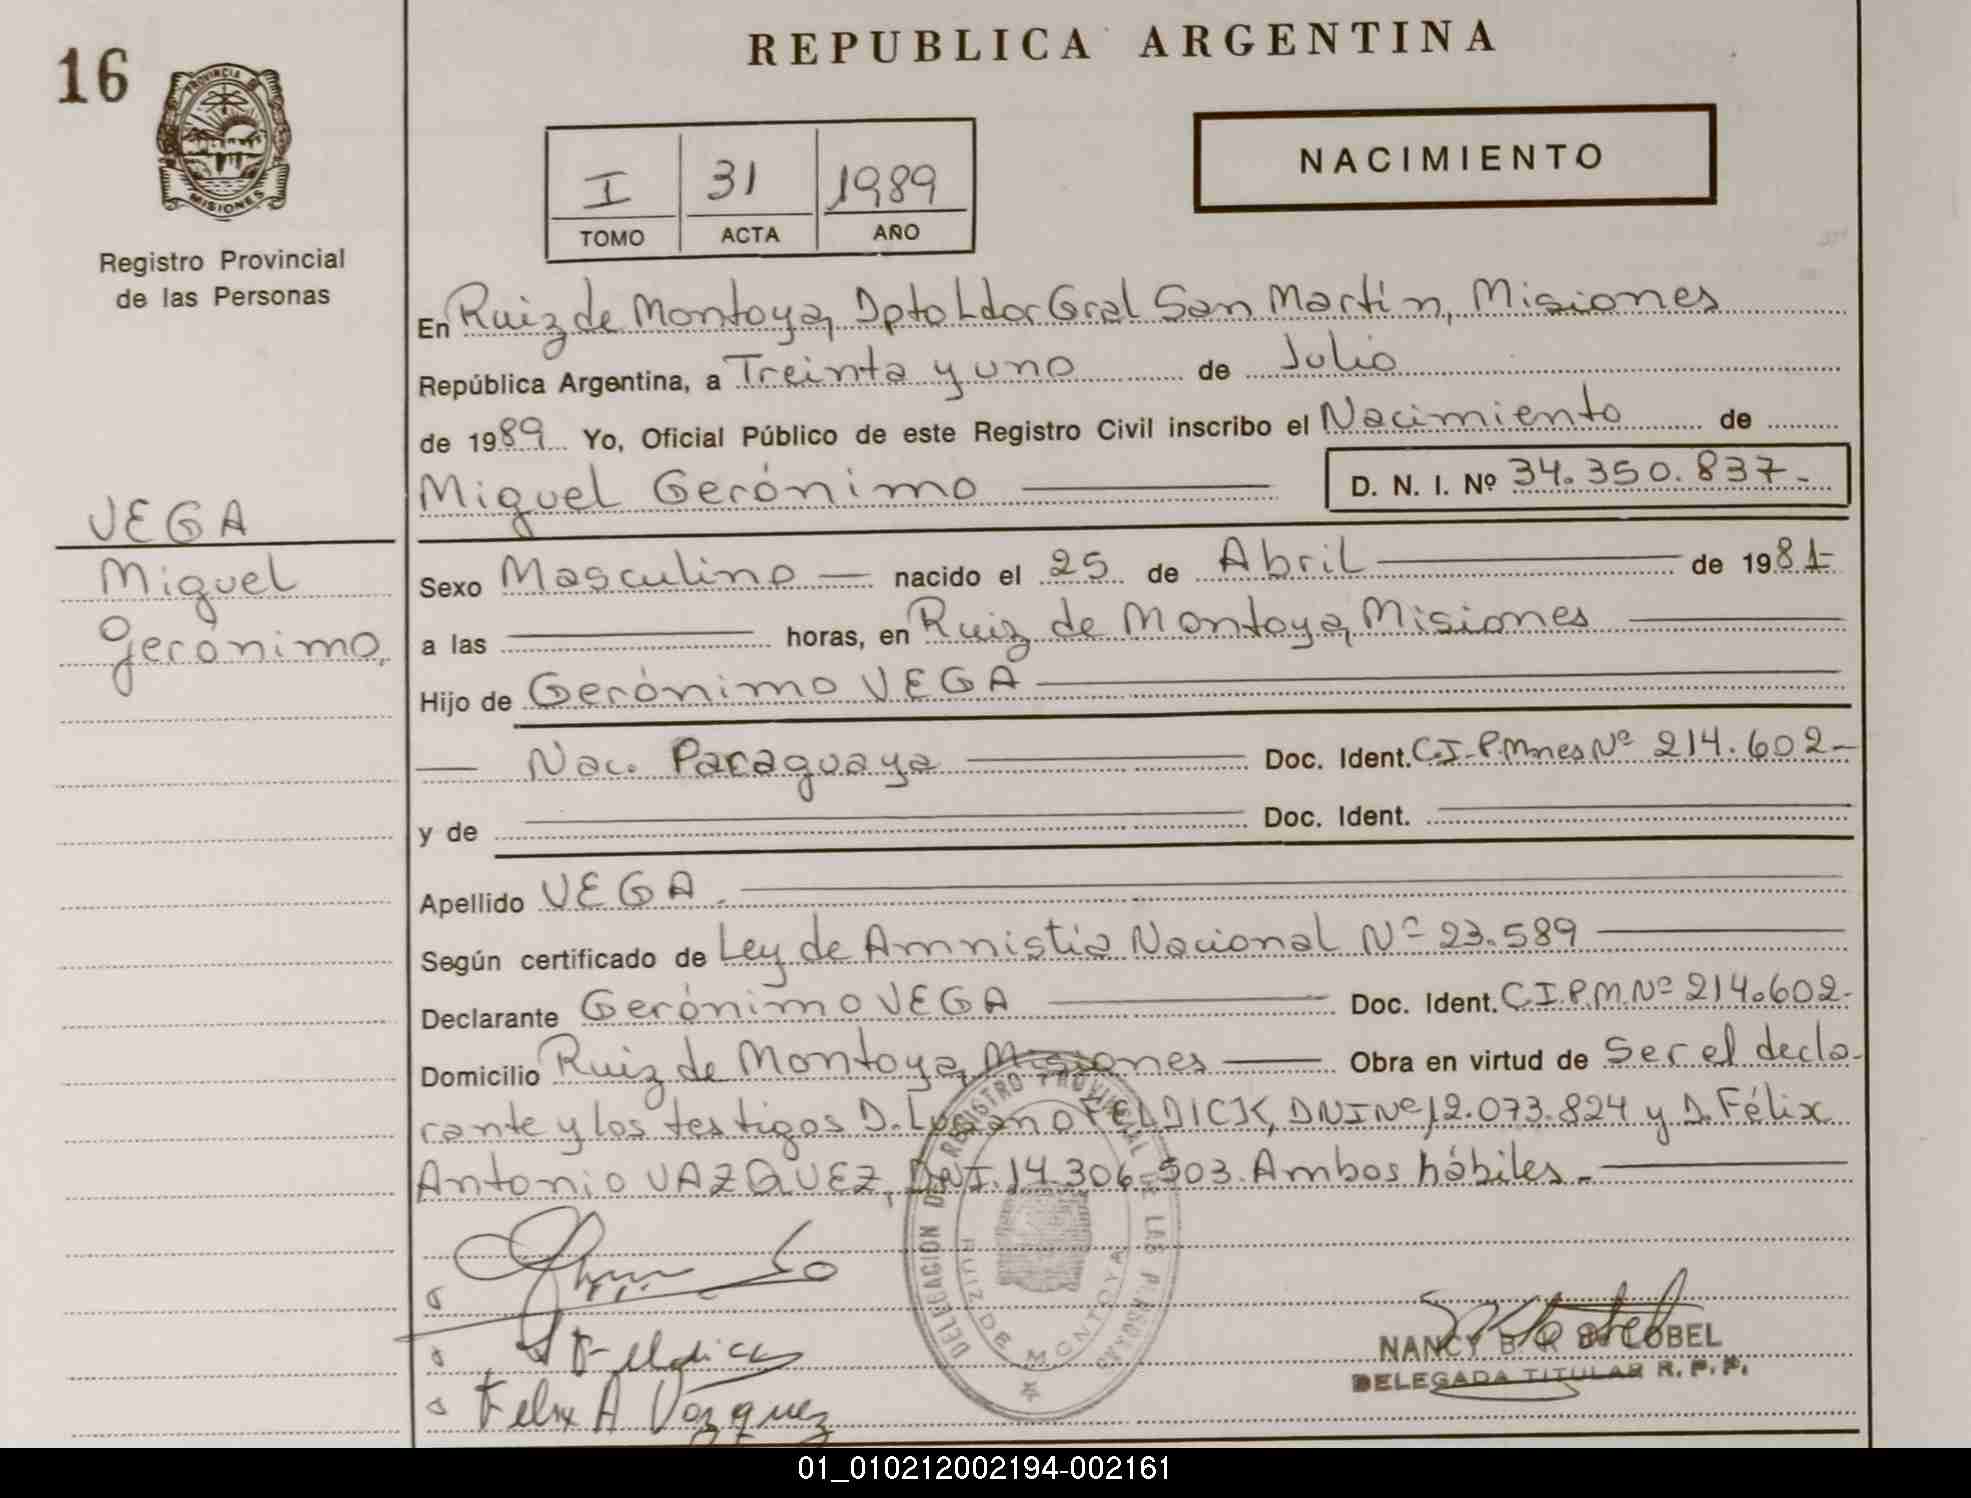 REPUBLICA ARGENTINA
16
PROVINCIA DE
MISIONES
Registro Provincial
de las Personas
I 31 1989
TOMO ACTA AÑO
NACIMIENTO
En Ruiz de Montoya, Dpto Ldor Gral San Martín, Misiones
República Argentina, a Treinta y uno de Julio
de 1989 Yo, Oficial Público de este Registro Civil inscribo el Nacimiento de
Miguel Gerónimo D. N. I. Nº 34.350.837-
VEGA
Miguel
Gerónimo,
Sexo Masculino — nacido el 25 de Abril de 1981-
a las horas, en Ruiz de Montoya, Misiones
Hijo de Gerónimo VEGA
— Nac. Paraguaya Doc. Ident. C.I.P.Mnes Nº 214.602-
y de Doc. Ident.
Apellido VEGA.
Según certificado de Ley de Amnistia Nacional Nº 23.589
Declarante Gerónimo VEGA Doc. Ident. C.I.P.M.Nº 214.602-
Domicilio Ruiz de Montoya, Misiones Obra en virtud de Ser el decla-
rante y los testigos D. Luciano FELDICK, DNI Nº 12.073.824 y D. Félix
Antonio VAZQUEZ, DNI. 14.306.503. Ambos hábiles.-
DELEGACION DEL REGISTRO PROVINCIAL DE LAS PERSONAS
RUIZ DE MONTOYA
Feldick
Felix A Vazquez
NANCY B. R. de LOBEL
DELEGADA TITULAR R. P. P.
01_010212002194-002161